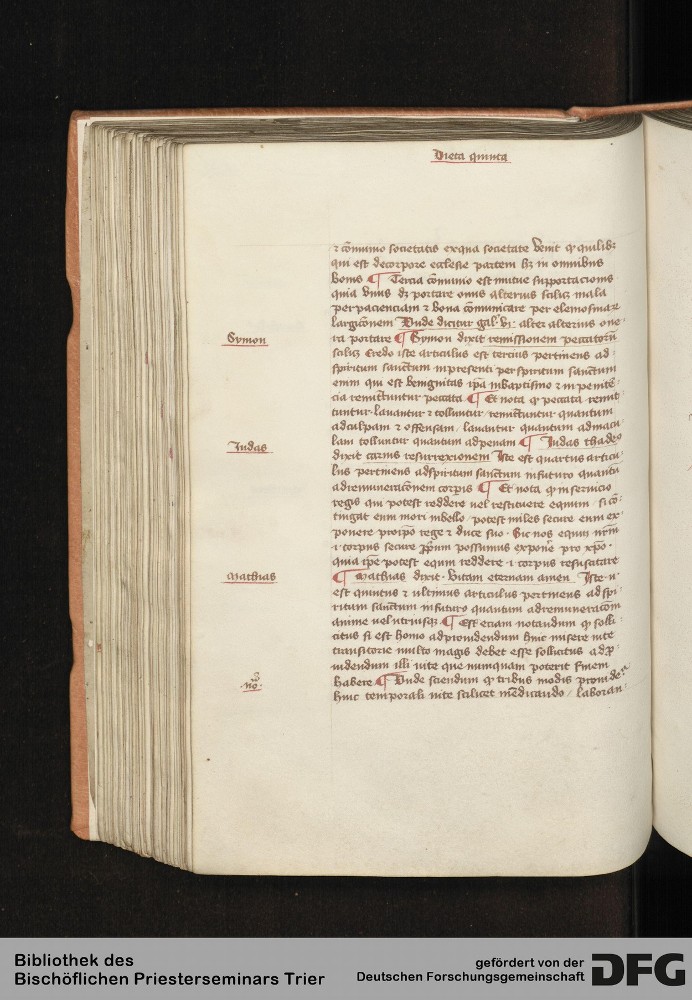 Dieta quinta
⁊ cōmunio societatis exqua societate venit ꝙ quilibꝫ
qui est decorpore ecclesie partem hꝫ in omnibus
bonis ¶ Tercia cōmunio est mutue supportacionis
quia vnus dꝫ portare onus alterius scilicꝫ mala
per pacienciam ⁊ bona cōmunicare per elemosinaꝝ
largicōnem Vnde dicitur gal. vi. alter alterius one
ra portare ¶ Symon dixit remissionem peccatorū
Symon
scilicꝫ Credo iste articulus est tercius pertinens ad
spiritum sanctum inpresenti per spiritum sanctum
enim qui est benignitas ip̄a inbaptismo ⁊ in penitē
cia remittuntur peccata ¶ Et nota ꝙ peccata remit
tuntur lauantur ⁊ tolluntur / remittuntur quantum
adculpam ⁊ offensam / lauantur quantum admacu
lam tolluntur quantum adpenam ¶ Judas thade
Judas
dixit carnis resurrexionem Iste est quartus articu
lus pertinens adspiritum sanctum infuturo quantū
adremuneracōnem corpis ¶ Et nota ꝙ in seruicio
regis qui potest reddere uel restituere equum si cō
tingat enim mori inbello / potest miles secure enim ex
ponere proip̄o rege ⁊ duce suo Sic nos equū nr̄m
.i. corpus secure possumus expon̄e pro xp̄o
quia ip̄e potest equm reddere .i. corpus resuscitare
¶ Mathias dixit Vitam eternam amen Iste
Mathias
est quintus ⁊ ultimus articulus pertinens ad spi
ritum sanctum infuturo quantum adremuneracōm
anime uel utriusqꝫ ¶ Est eciam notandum ꝙ solli
citus si est homo adprouidendum huic misere uite
transitorie multo magis debet esse sollicitus adp
uidendum illi uite que nunquam poterit finem
habere ¶ Vnde sciendum ꝙ tribus modis prouide
huic temporali uite scilicet mēdicando / laboran
Bibliothek des
Bischöflichen Priesterseminars Trier
gefördert von der
Deutschen Forschungsgemeinschaft
DFG